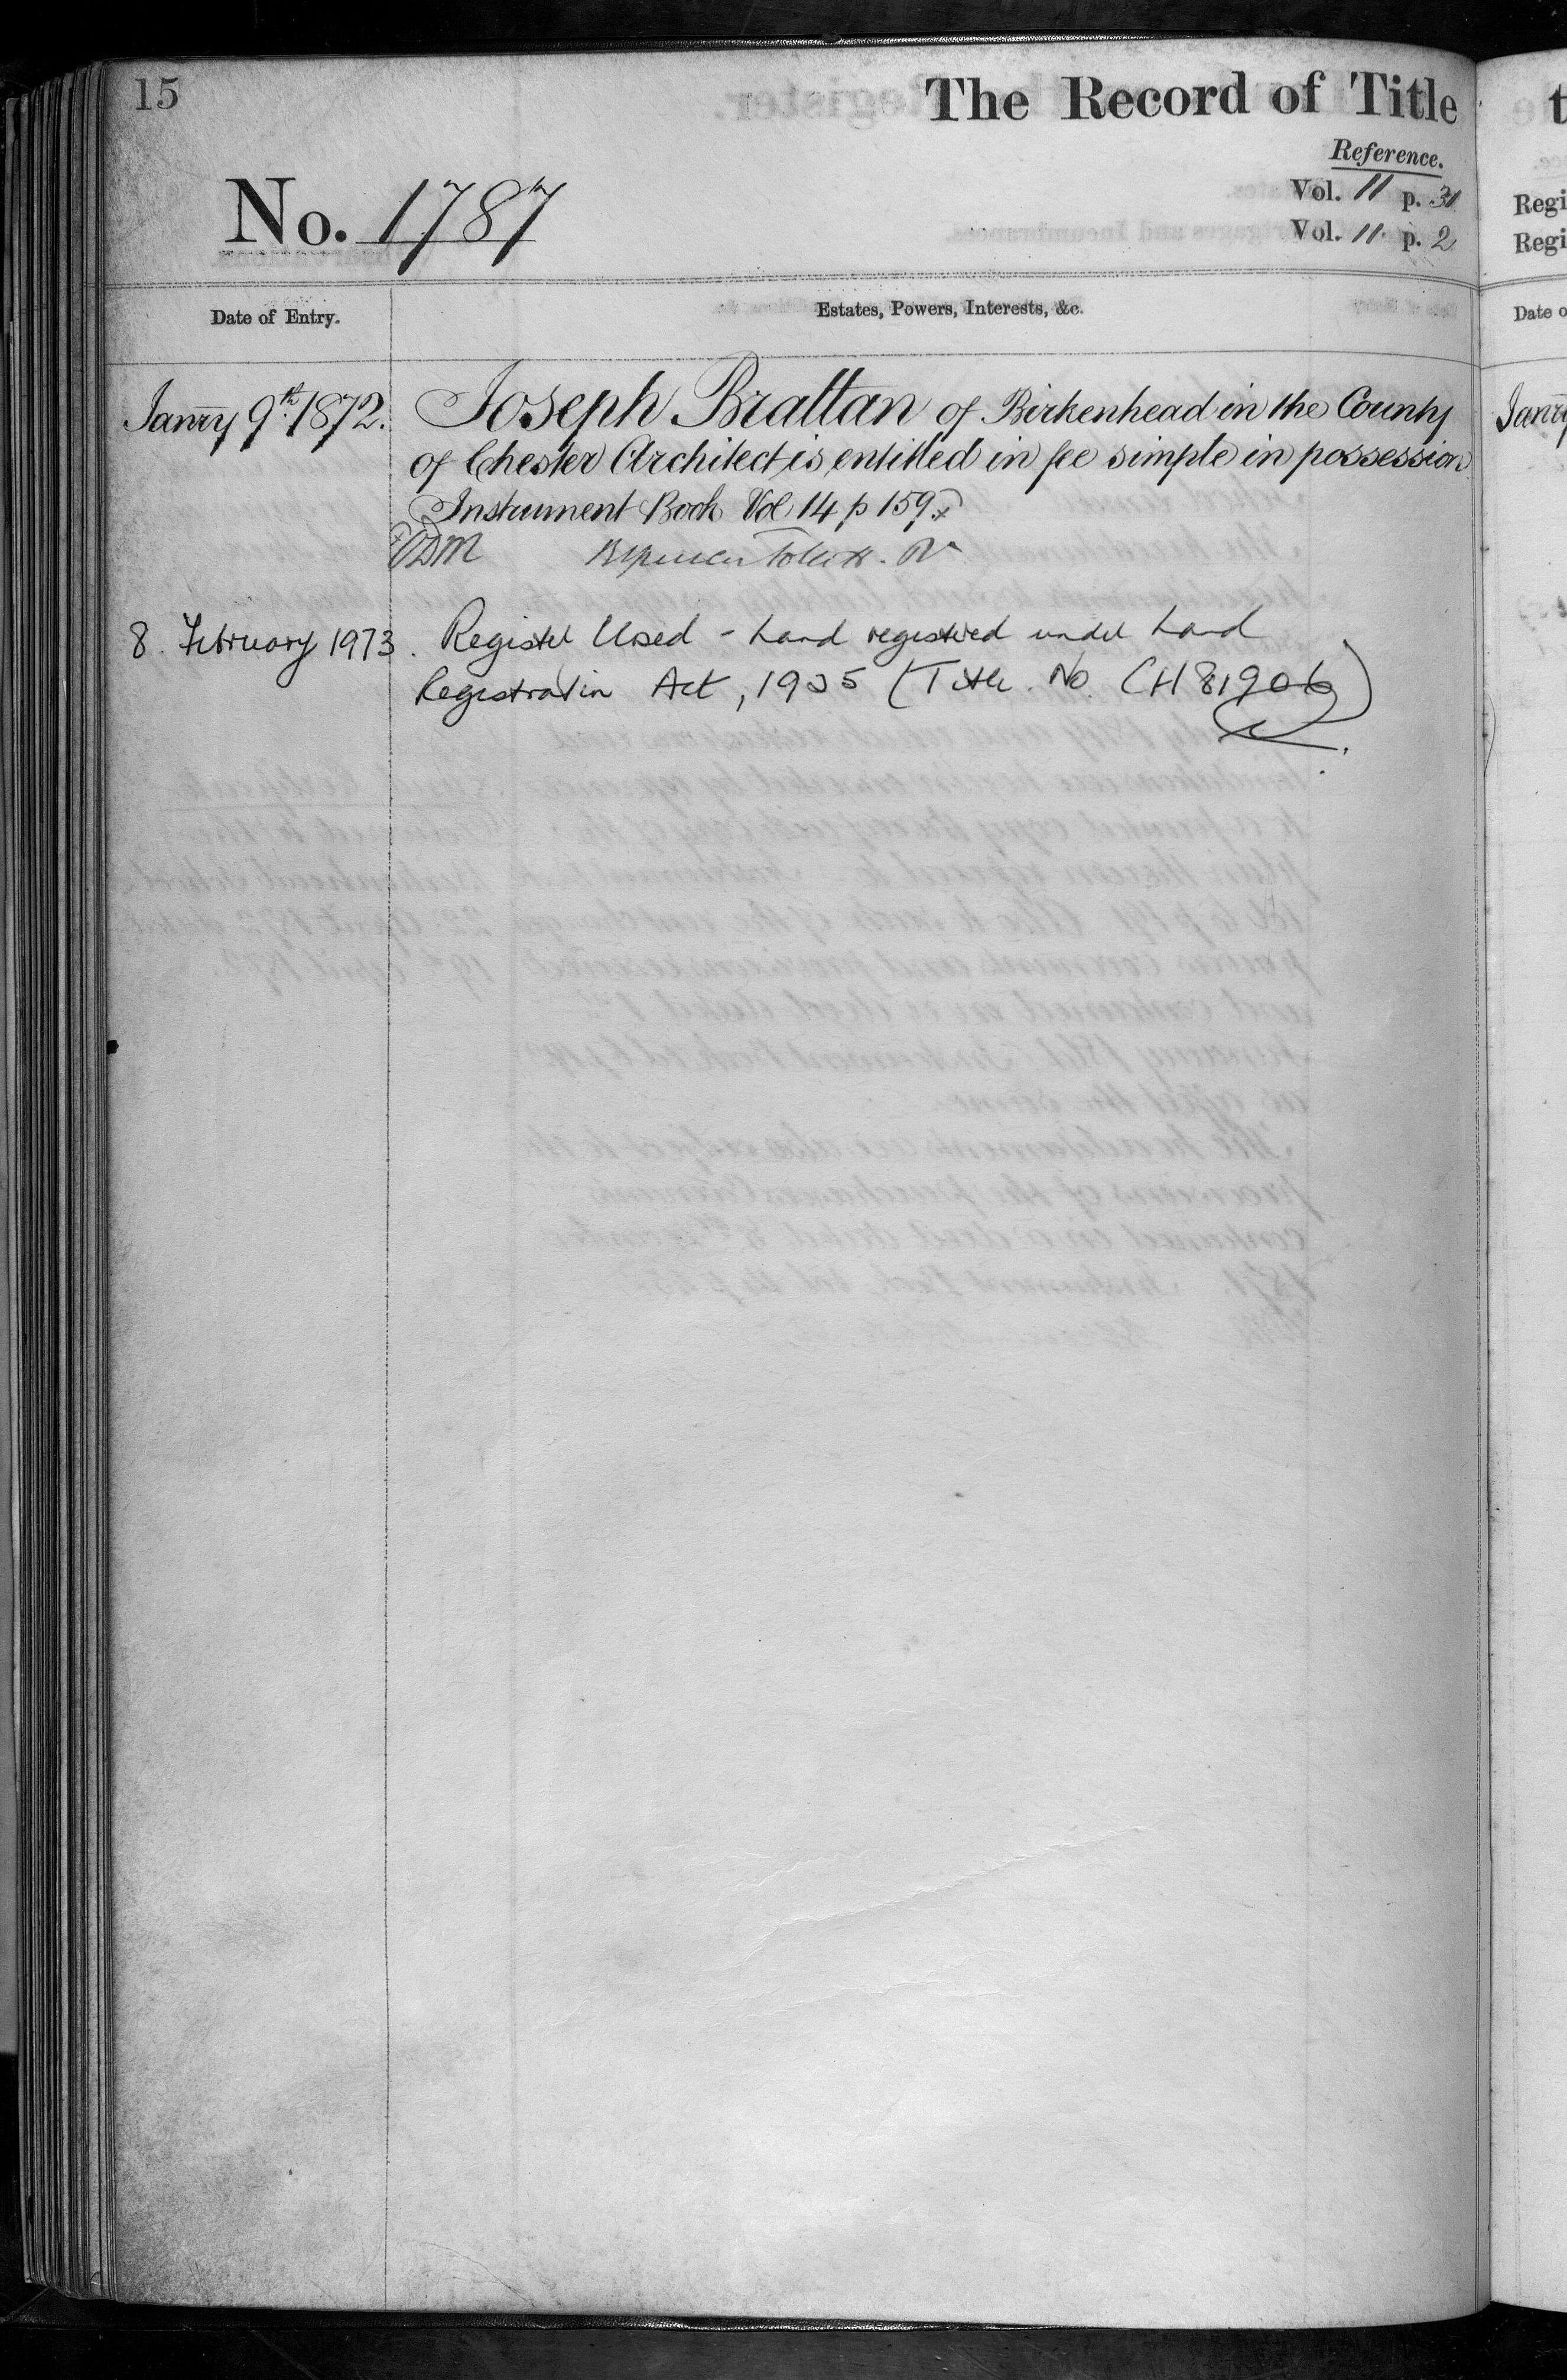 15
The Record of Title
Reference.
No. 1787
Vol. 11 p. 31
Vol. 11. p. 2
Date of Entry.
Estates, Powers, Interests, &c.
Janry 9th. 1872.
Joseph Brattan of Birkenhead in the County
of Chester Architect is entitled in fee simple in possession
Instrument Book Vol 14 p 159.
8. February 1973.
Register Closed - Land registered under Land
Registration Act, 1925 (Title No. CH 81906)
t
Regi
Regi
Date o
Janry